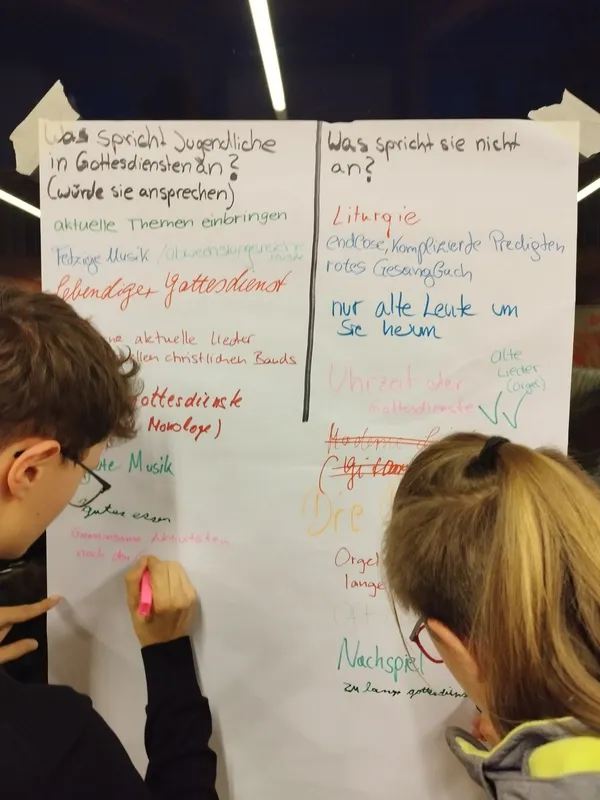 Was spricht Jugendliche
in Gottesdiensten an?
(würde sie ansprechen)
aktuelle Themen einbringen
Fetzige Musik /abwechslungsreiche
lebendiger Gottesdienst
aktuelle Lieder
christlichen Bands
Gottesdienste
Monologe)
Musik
gutes essen
Gemeinsame Aktivitäten
nach dem
Was spricht sie nicht
an?
Liturgie
endlose, komplizierte Predigten
rotes Gesangbuch
nur alte Leute um
Sie herum
alte
Lieder
(Orgel)
Uhrzeit der
Gottesdienste
Die
Orgel
lange
Nachspiel
zu lange gottesdiens